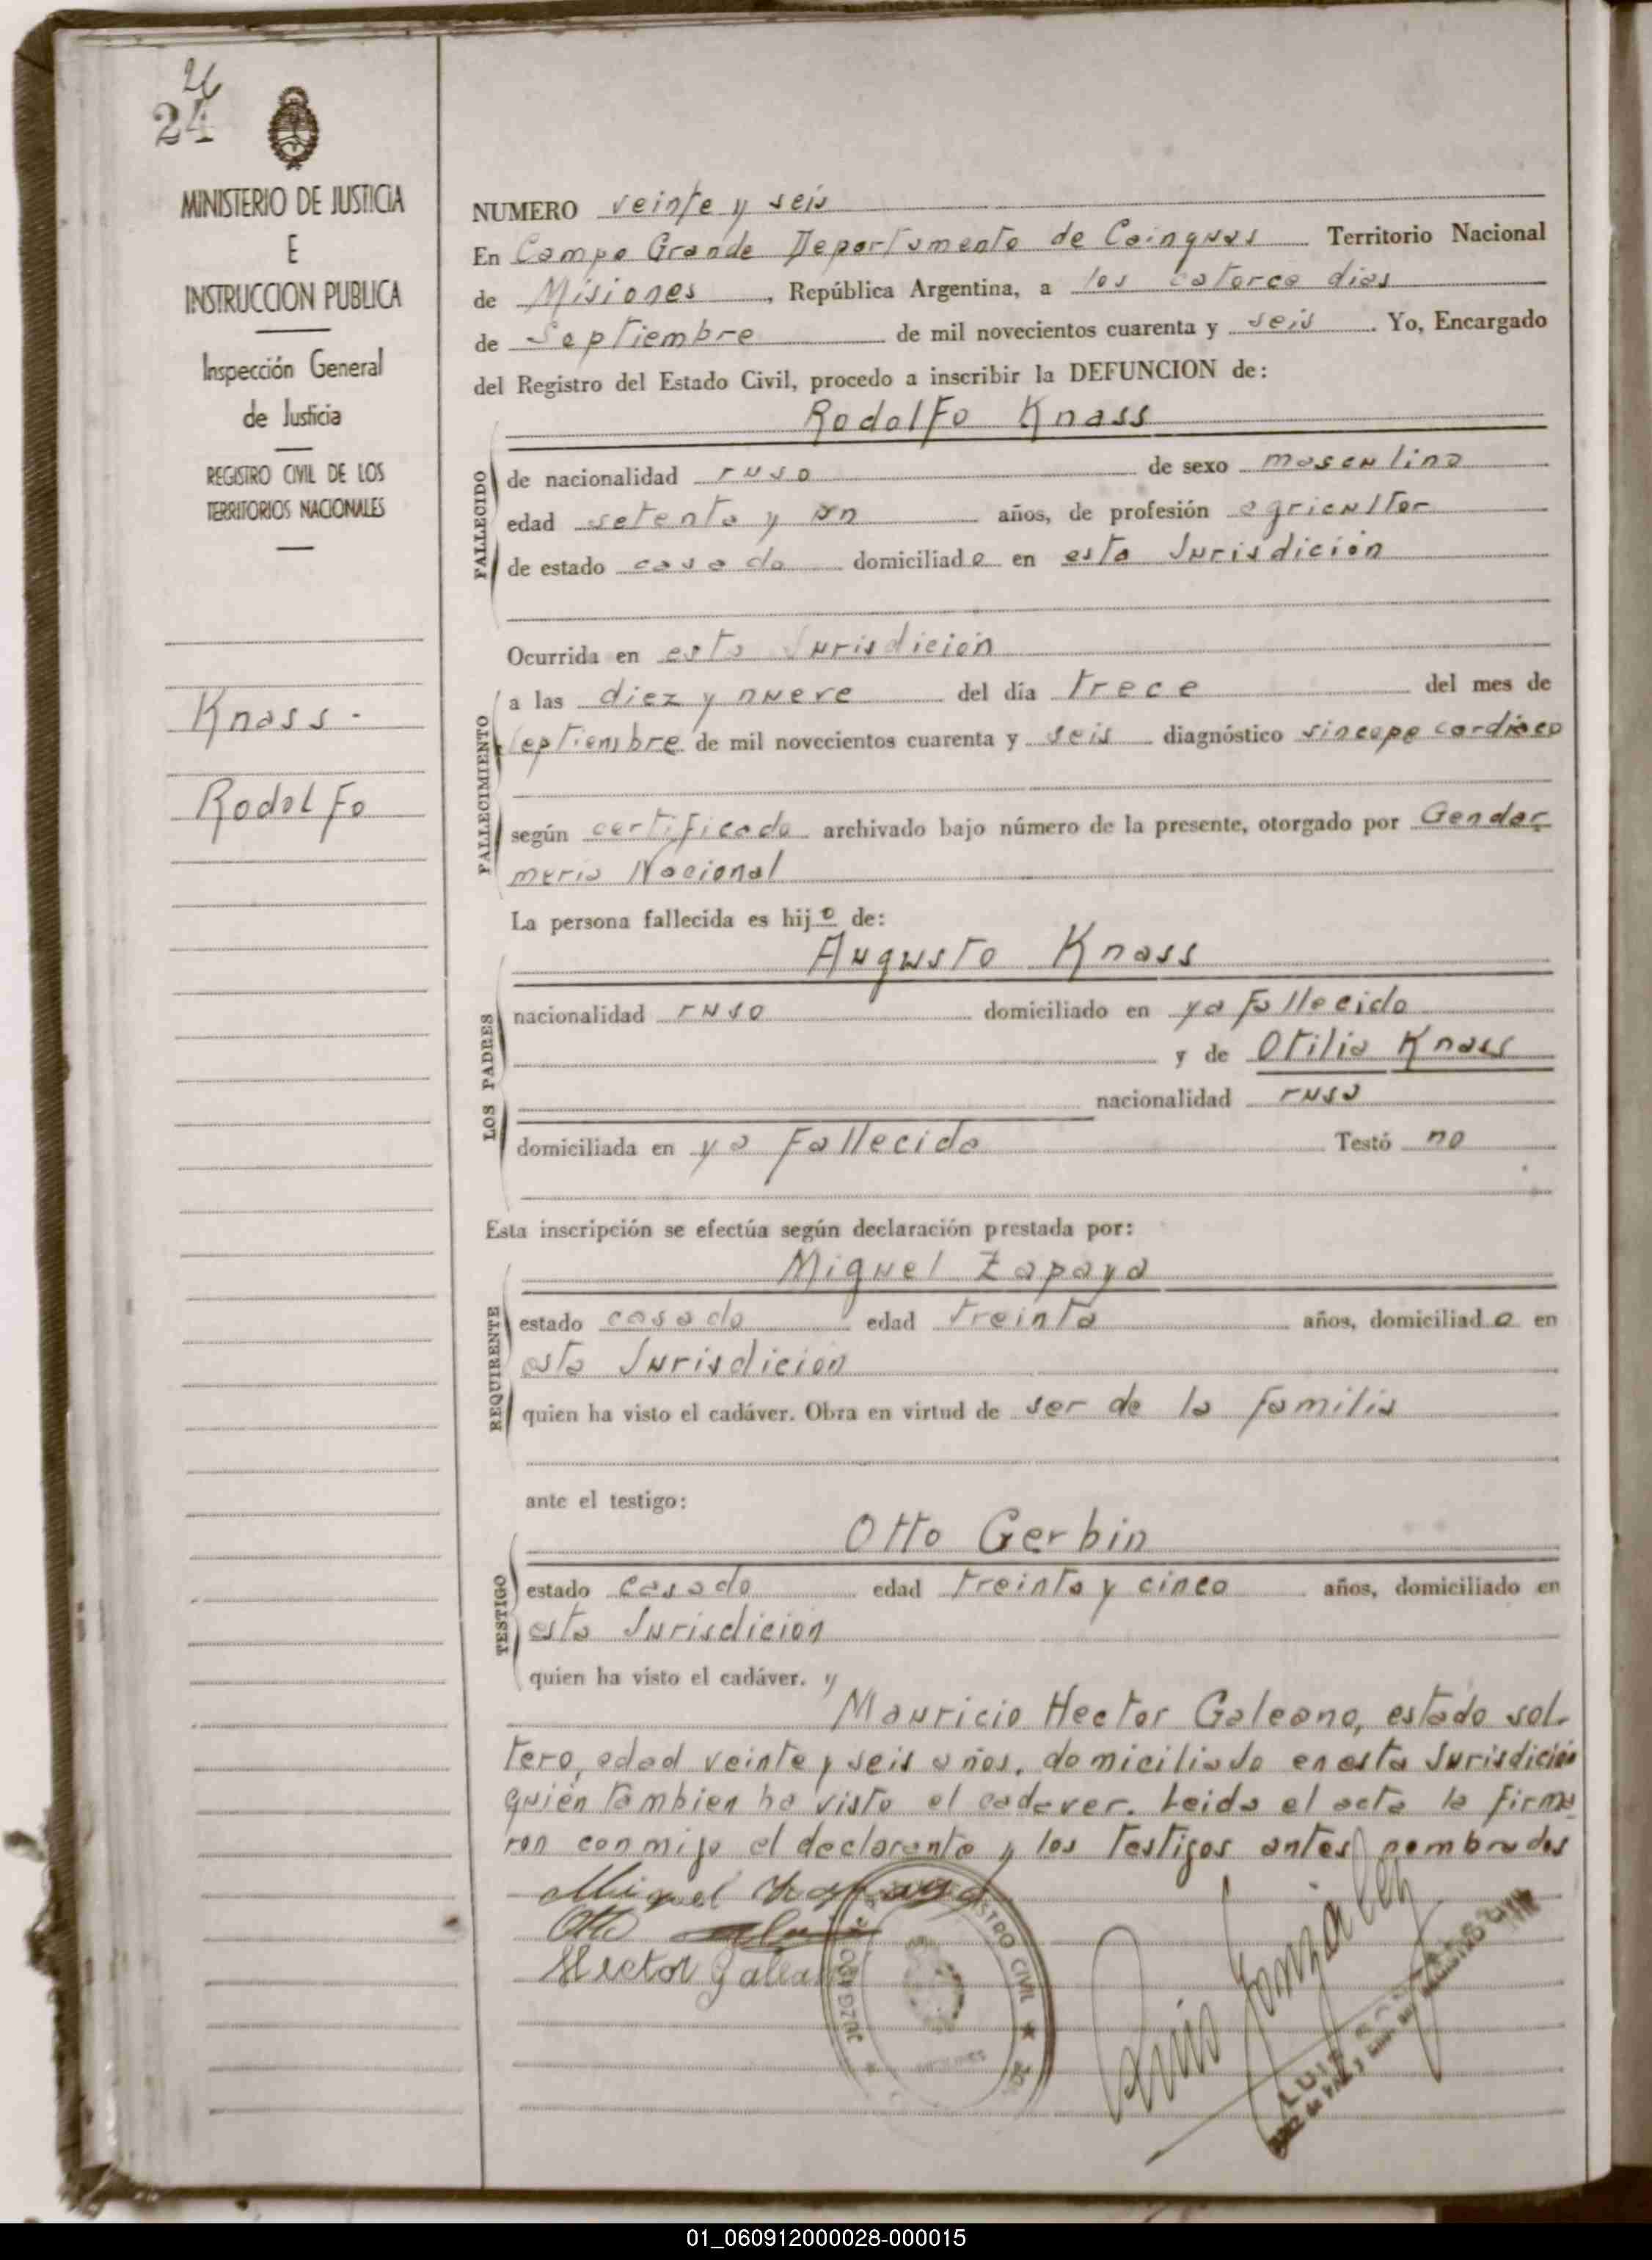 26
24
MINISTERIO DE JUSTICIA
E
INSTRUCCION PUBLICA
Inspección General
de Justicia
REGISTRO CIVIL DE LOS
TERRITORIOS NACIONALES
Knass.
Rodolfo
NUMERO veinte y seis
En Campo Grande Departamento de Cainguas Territorio Nacional
de Misiones, República Argentina, a los catorce dias
de Septiembre de mil novecientos cuarenta y seis. Yo, Encargado
del Registro del Estado Civil, procedo a inscribir la DEFUNCION de:
Rodolfo Knass
FALLECIDO
de nacionalidad ruso de sexo masculino
edad setenta y un años, de profesión agricultor
de estado casado domiciliado en esta Jurisdición
Ocurrida en esta Jurisdición
FALLECIMIENTO
a las diez y nueve del día trece del mes de
Septiembre de mil novecientos cuarenta y seis diagnóstico sincope cardiaco
según certificado archivado bajo número de la presente, otorgado por Gendar
meria Nacional
La persona fallecida es hijo de:
Augusto Knass
LOS PADRES
nacionalidad ruso domiciliado en ya fallecido
y de Otilia Knass
nacionalidad rusa
domiciliada en ya fallecida Testó no
Esta inscripción se efectúa según declaración prestada por:
Miguel Zapaya
REQUIRENTE
estado casado edad treinta años, domiciliado en
esta Jurisdicion
quien ha visto el cadáver. Obra en virtud de ser de la familia
ante el testigo:
Otto Gerbin
TESTIGO
estado casado edad treinta y cinco años, domiciliado en
esta Jurisdicion
quien ha visto el cadáver. y
Mauricio Hector Galeano, estado sol-
tero, edad veinte y seis años, domiciliado en esta Jurisdición
quién tambien ha visto el cadaver. Leida el acta la firma
ron conmigo el declarante y los testigos antes nombrados
Miguel Zapaya
Otto
Hector Galeano
JUZGADO DE REGISTRO CIVIL
Luis Gonzalez
LUIS
JUEZ de PAZ REGISTRO CIVIL
01_060912000028-000015